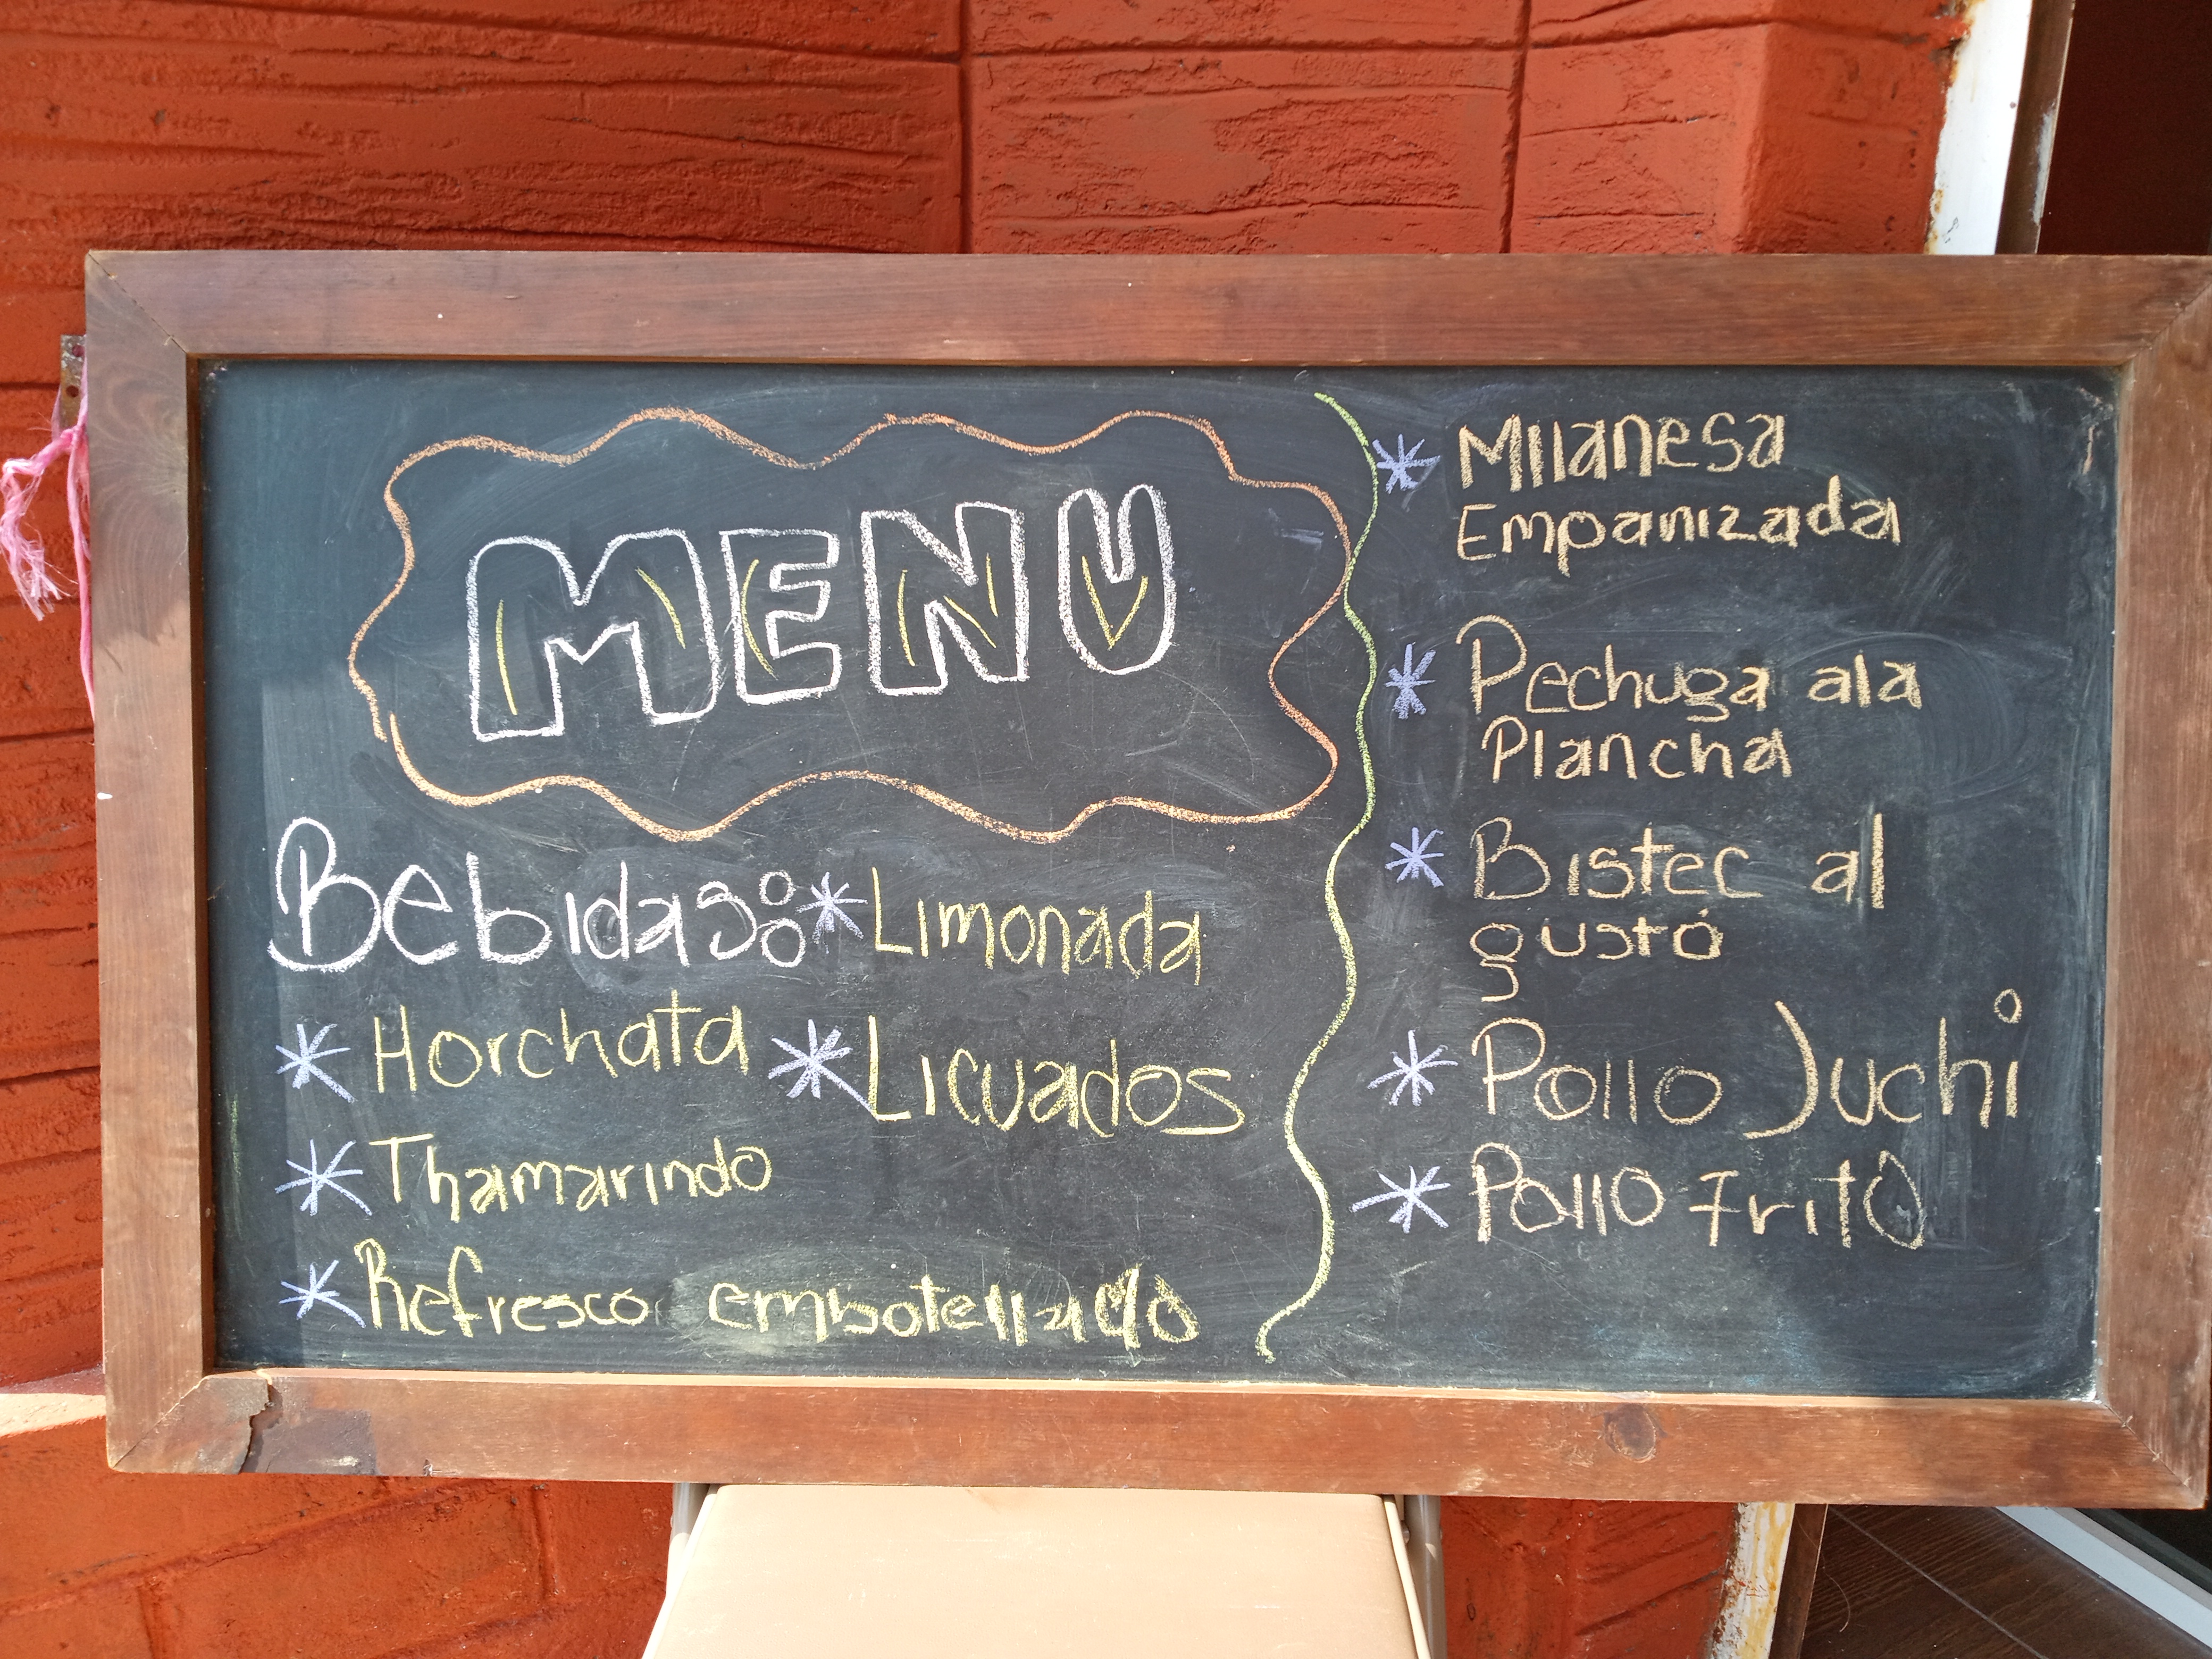 MENU
Bebidas:
* Limonada
* Horchata
* Licuados
* Thamarindo
* Refresco embotellado
* Milanesa
Empanizada
* Pechuga ala
Plancha
* Bistec al
gusto
* Pollo Juchi
* Pollo frito